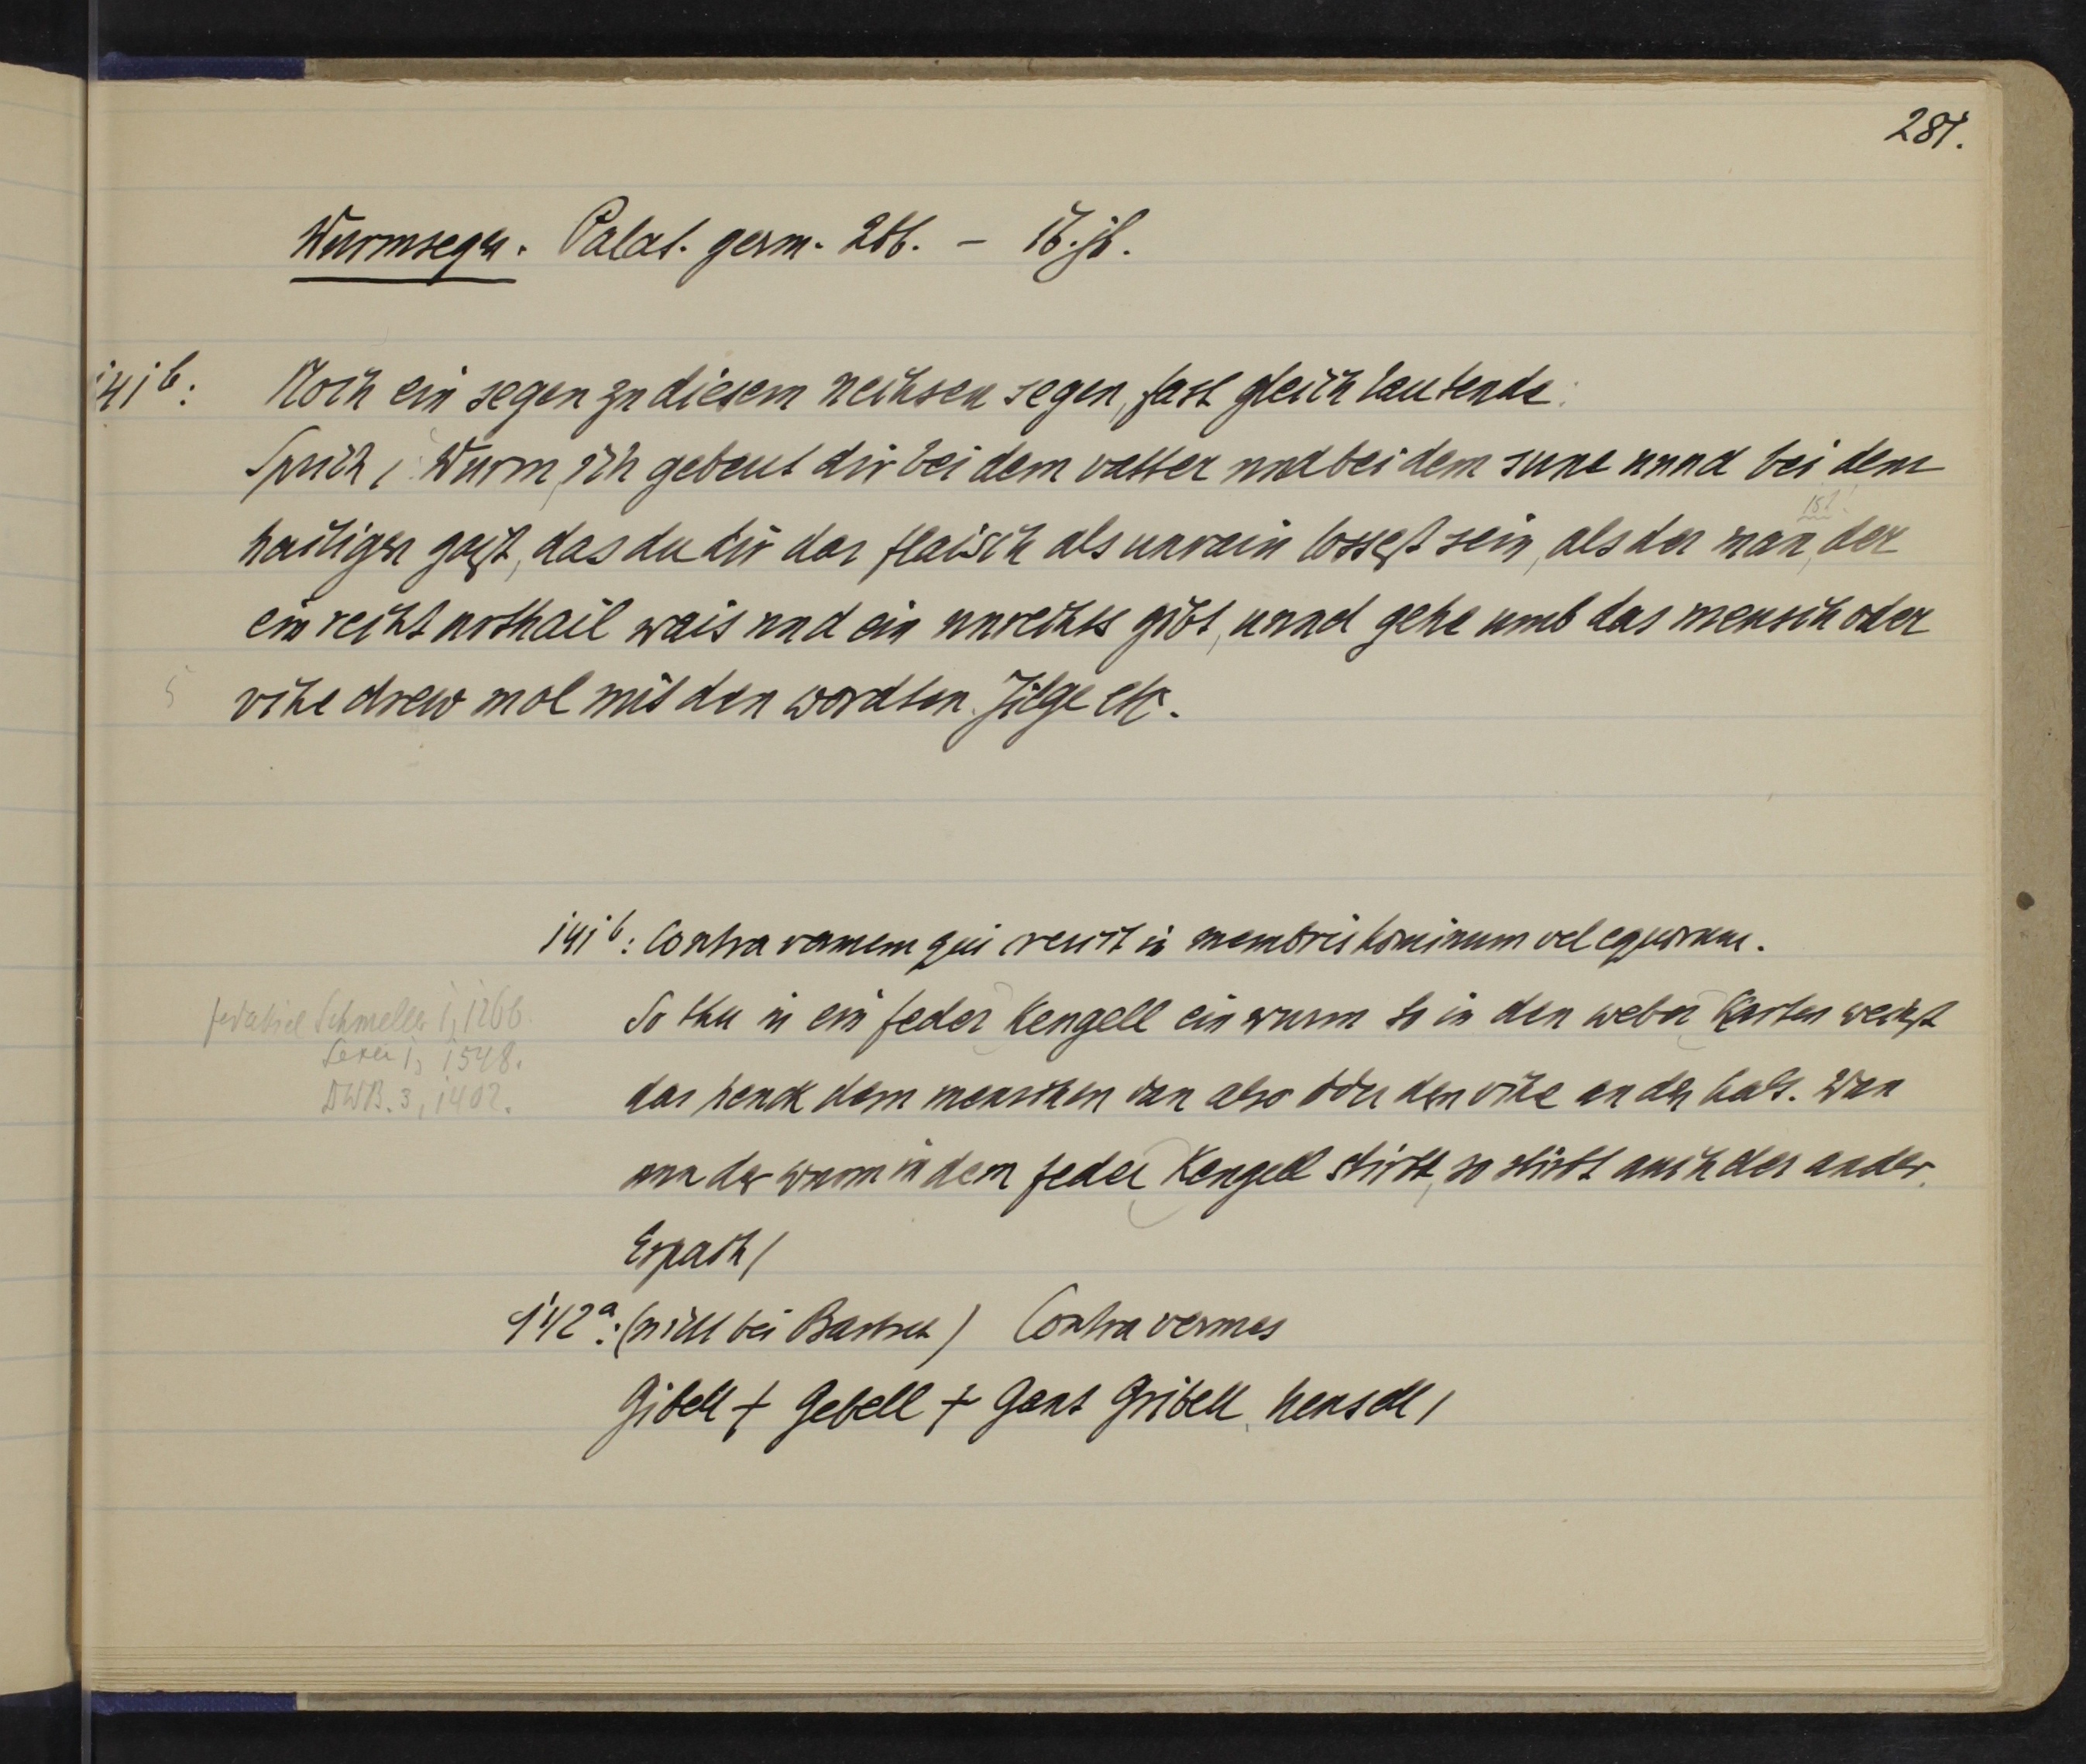 281.
Wurmsegen. Palat. germ. 266. – 16. jh.
141b: Noch ein segen zu diesem nechsen segen, fast gleich lautende:
Sprich / Wurm, ich gebeut dir bei dem vatter und bei dem sune unnd bei dem
ist!
hailigen gaist, das du dir das flaisch als unrain lossest sein, als der man, der
ein recht urthail wais und ein unrechts gibt, unnd gehe umb das mensch oder
5 vihe drew mol mit den wordten. Jilge etc.
141b: Contra vermem qui crescit in membris hominum vel equorum.
So thu in ein feder Kengell ein wurm so in den weber Karten wechst
federkiel Schmeller 1, 1266.
Lexer 1, 1548.
DWB. 3, 1402.
das henck dem menschen dan also oder dem vihe an den hals. Wan
nun der wurm in dem feder Kengell stirbt, so stirbt auch der ander.
Erpach /
142a: (nicht bei Bartsch) Contra vermes
Gibell + Gebell + Gant Gribell, hensell /